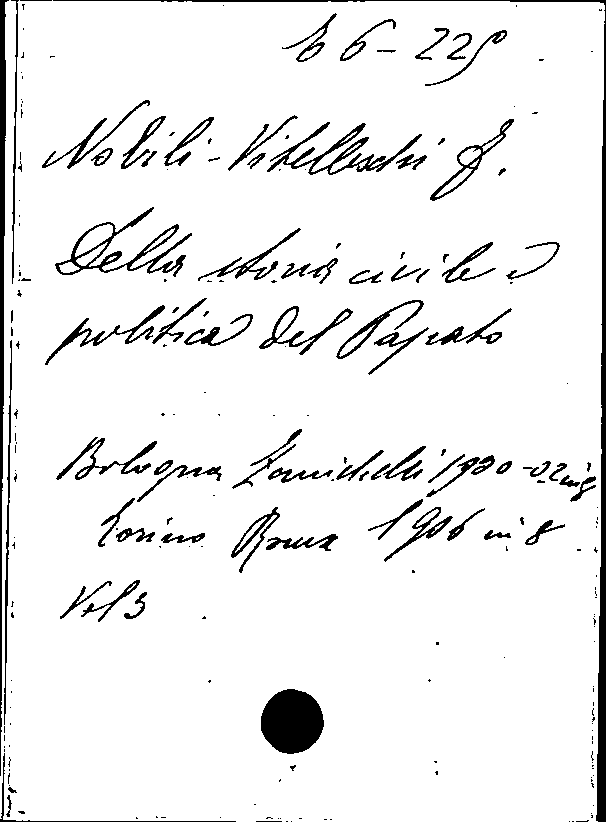 E 6-225
Nobili-Vitelleschi F.
Della storia civile e
politica del Papato
Bologna Zanichelli 1900-02 in 8
Torino Roux 1906 in 8
Vol 3